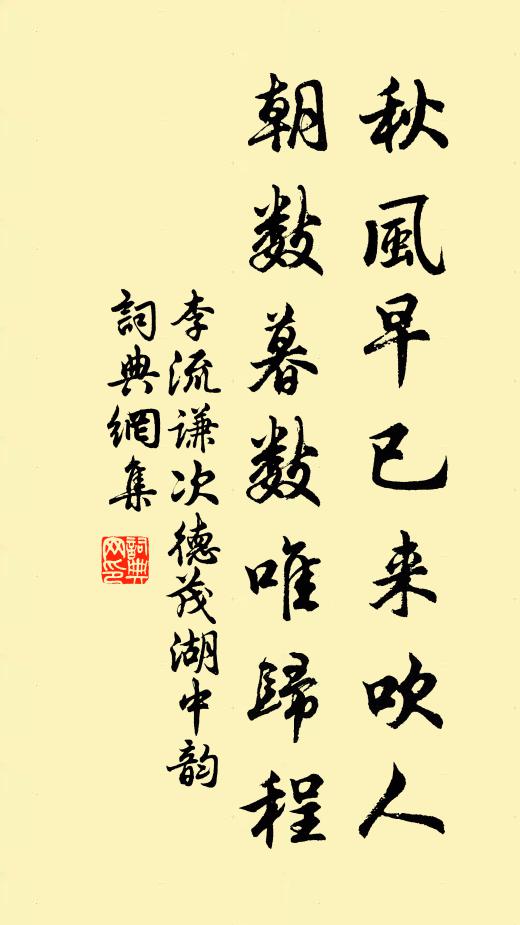 秋風早已来吹人
朝数暮数唯歸程
李流谦次德茂湖中韵
詞典網集
詞典網印